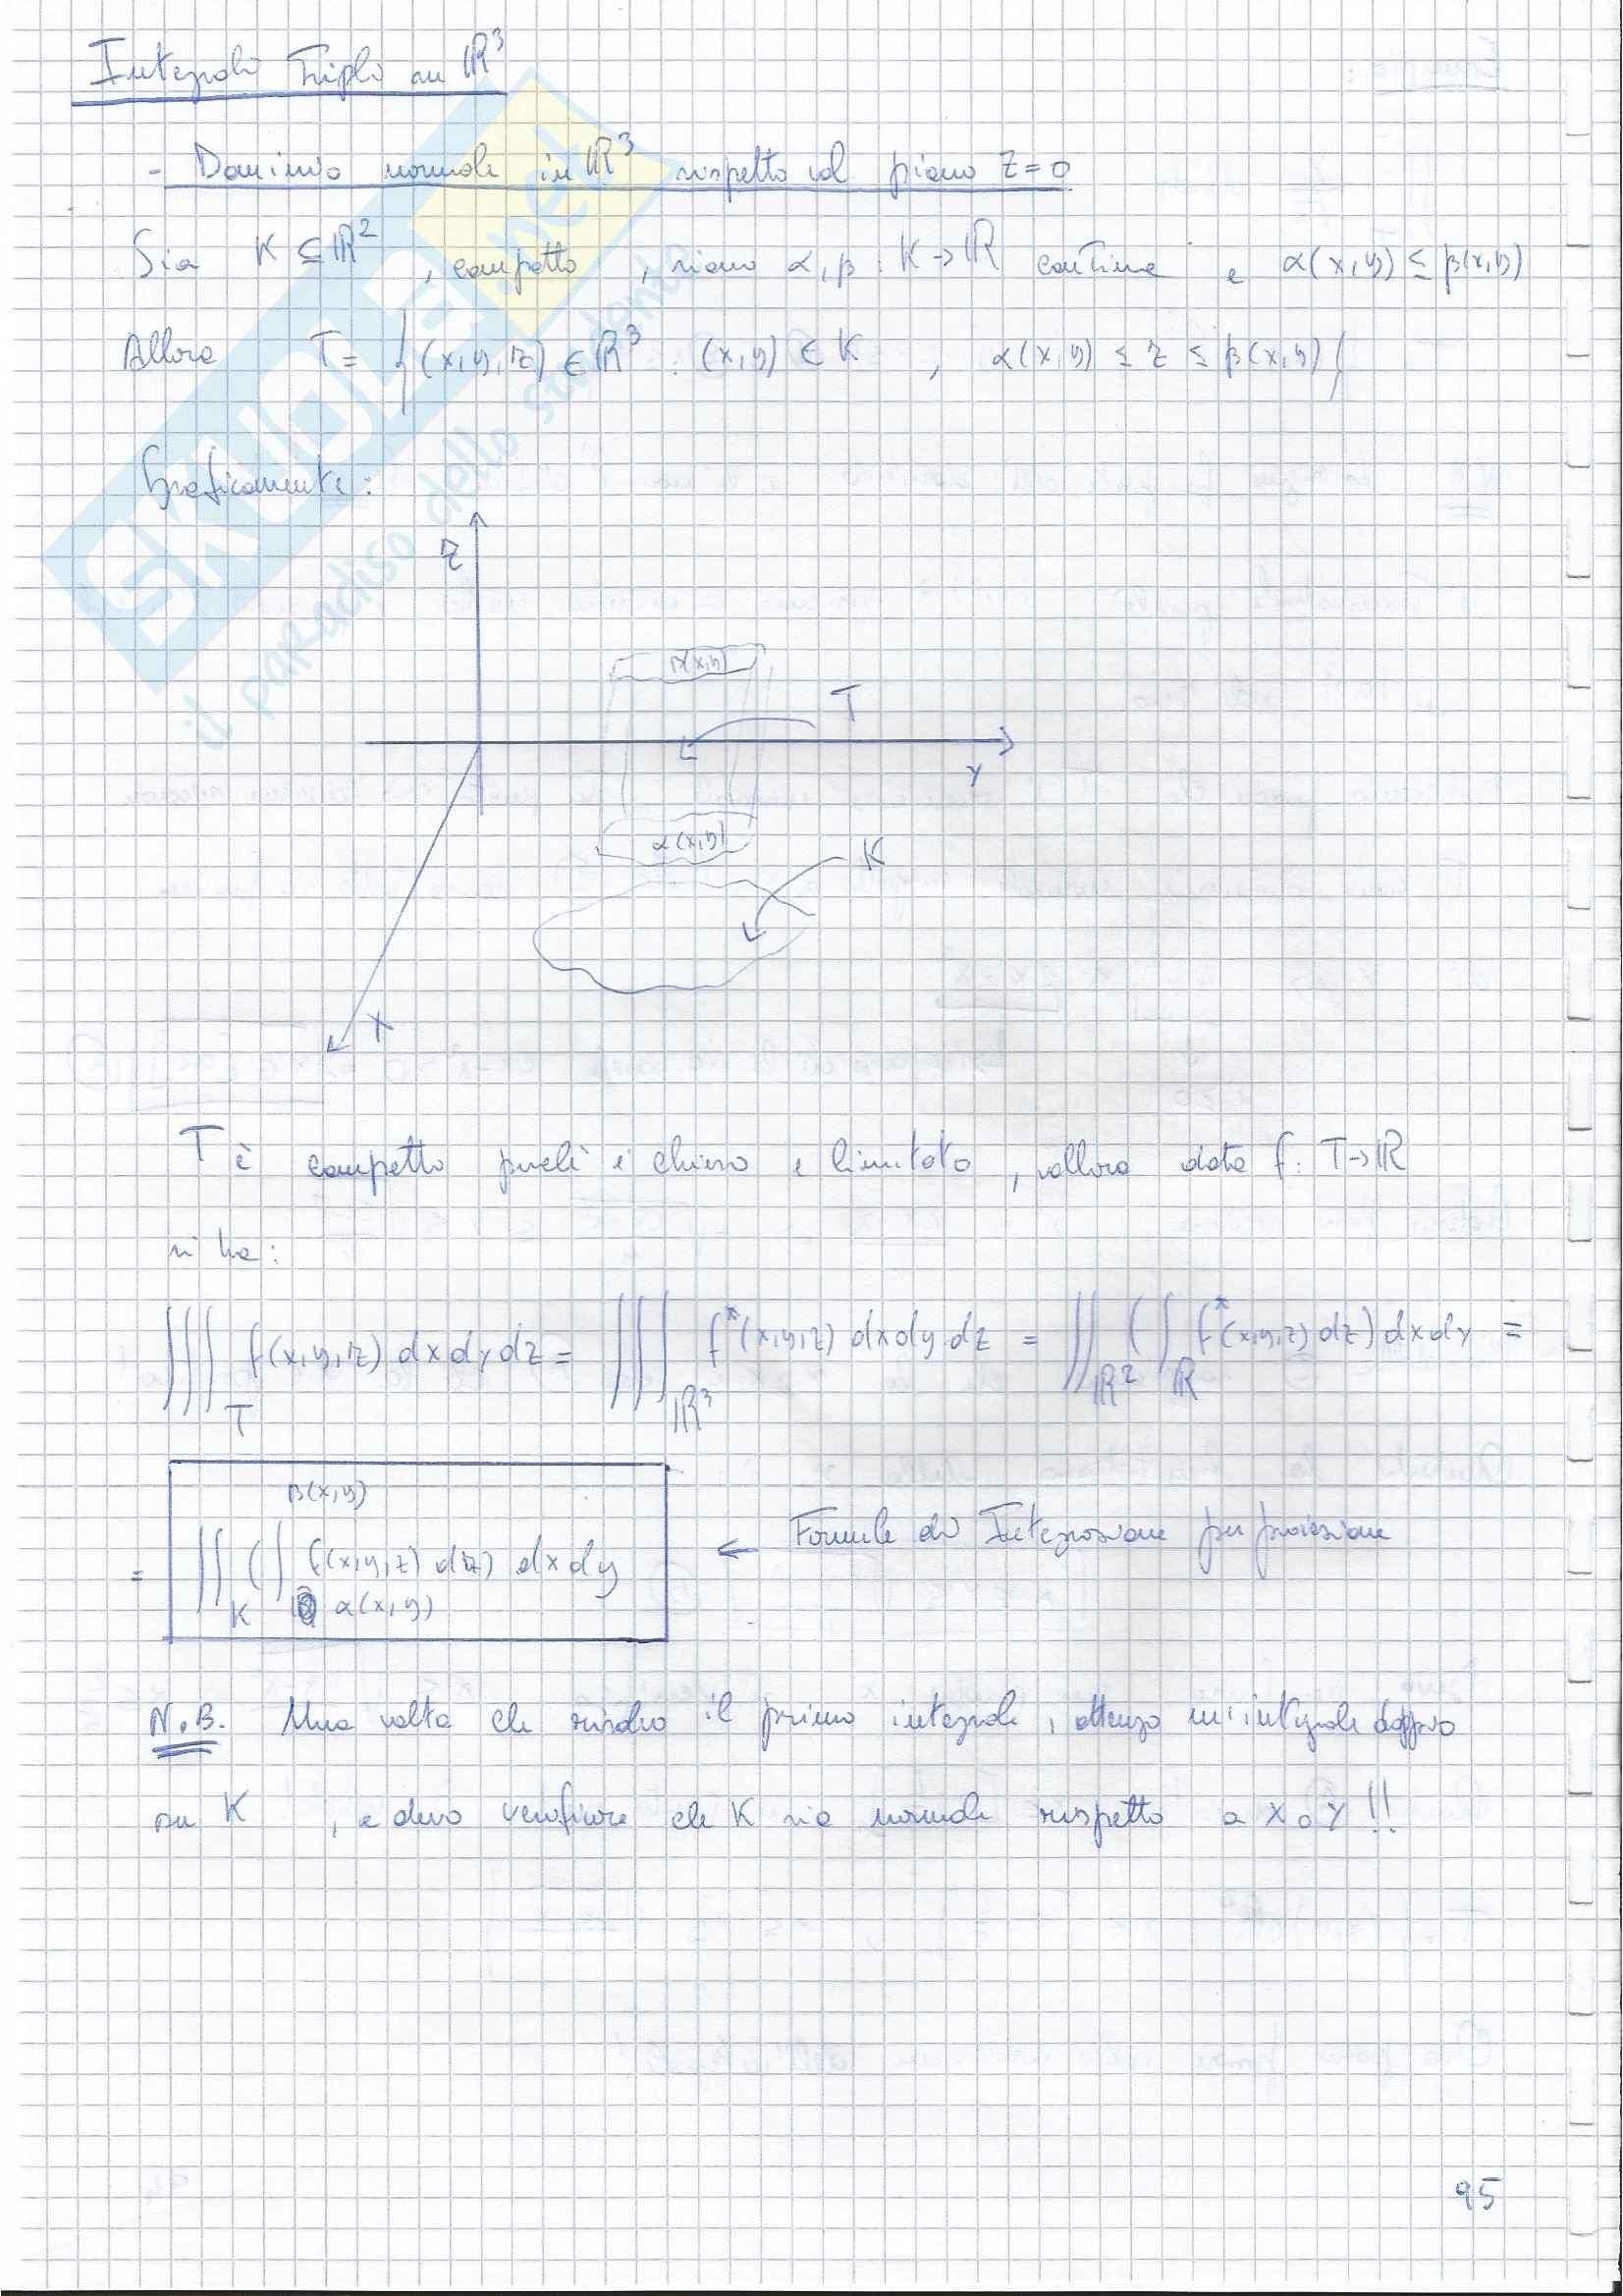 Integrale Triplo su ℝ³
- Dominio normale in ℝ³ rispetto al piano z=0
Sia K ⊆ ℝ² , compatto , siano α, β : K → ℝ continue e α(x,y) ≤ β(x,y)
Allora T = {(x,y,z) ∈ ℝ³ : (x,y) ∈ K , α(x,y) ≤ z ≤ β(x,y)}
Graficamente:
z
β(x,y)
T
y
α(x,y)
K
x
T è compatto perché è chiuso e limitato , allora data f: T → ℝ
si ha:
∭_T f(x,y,z) dx dy dz = ∭_ℝ³ f*(x,y,z) dx dy dz = ∬_ℝ² ( ∫_ℝ f*(x,y,z) dz ) dx dy =
= ∬_K ( ∫_α(x,y)^β(x,y) f(x,y,z) dz ) dx dy ← Formula di Integrazione per proiezione
N.B. Una volta che risolvo il primo integrale , ottengo un integrale doppio
su K , e devo verificare che K sia normale rispetto a x o y !!
95
SKUOLA.net
il paradiso dello studente